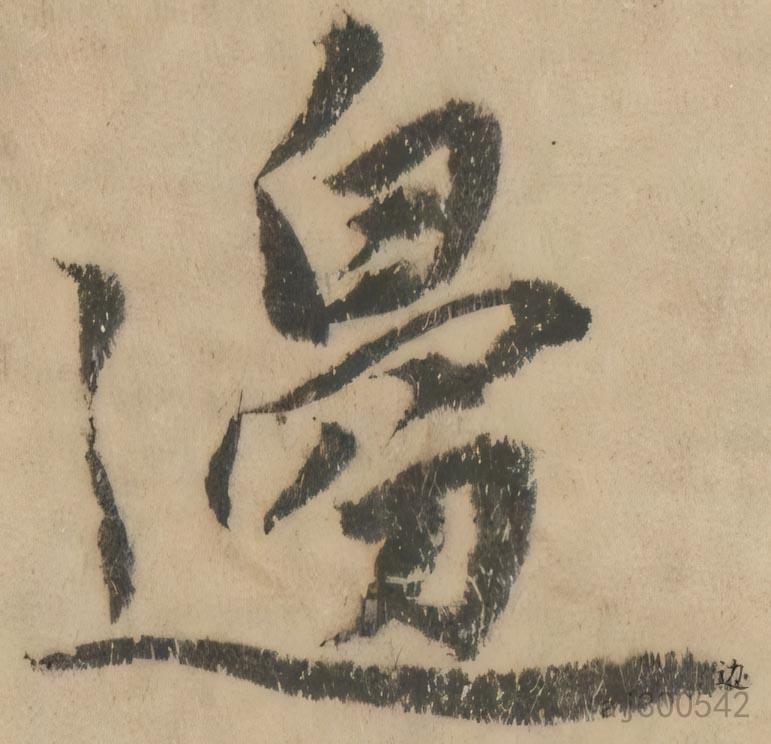 邊
边
aj300542